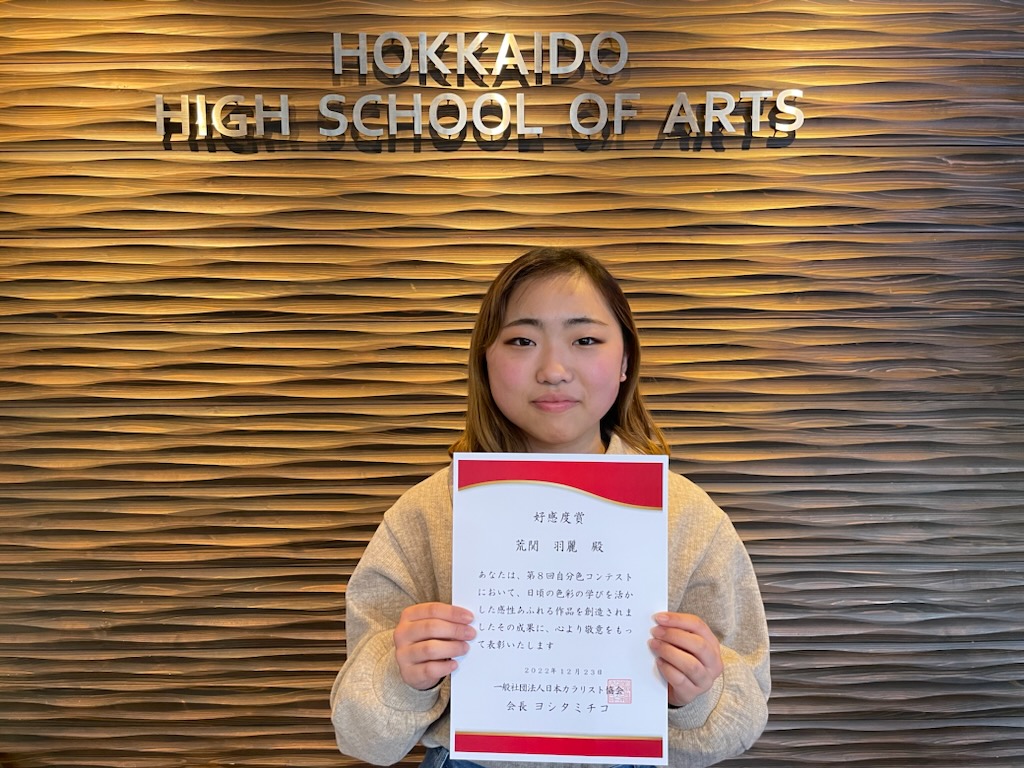 HOKKAIDO
HIGH SCHOOL OF ARTS
好感度賞
荒関 羽麗 殿
あなたは、第8回自分色コンテスト
において、日頃の色彩の学びを活か
した感性あふれる作品を創造されま
したその成果に、心より敬意をもっ
て表彰いたします
2022年12月23日
一般社団法人日本カラリスト協会
会長 ヨシタミチコ